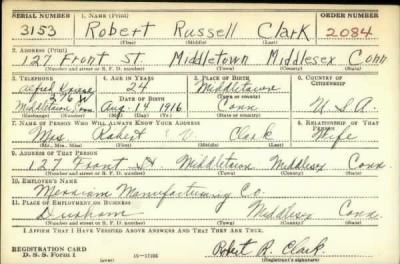 SERIAL NUMBER 1. NAME (Print) ORDER NUMBER
3153 Robert Russell Clark 2084
(First) (Middle) (Last)
2. ADDRESS (Print)
127 Front St. Middletown Middlesex Conn
(Number and street or R. F. D. number) (Town) (County) (State)
3. TELEPHONE 4. AGE IN YEARS 5. PLACE OF BIRTH 6. COUNTRY OF CITIZENSHIP
Alfred
24 Middletown
216 W DATE OF BIRTH (Town or county)
Middletown Conn Aug. 14 1916 Conn U.S.A.
(Exchange) (Number) (Mo.) (Day) (Yr.) (State or country)
7. NAME OF PERSON WHO WILL ALWAYS KNOW YOUR ADDRESS 8. RELATIONSHIP OF THAT PERSON
Mrs Robert V. Clark Wife
(Mr., Mrs., Miss) (First) (Middle) (Last)
9. ADDRESS OF THAT PERSON
127 Front St. Middletown Middlesex Conn
(Number and street or R. F. D. number) (Town) (County) (State)
10. EMPLOYER'S NAME
Merriam Manufacturing Co.
11. PLACE OF EMPLOYMENT OR BUSINESS
Durham Middlesex Conn.
(Number and street or R. F. D. number) (Town) (County) (State)
I AFFIRM THAT I HAVE VERIFIED ABOVE ANSWERS AND THAT THEY ARE TRUE.
REGISTRATION CARD
D. S. S. Form 1 (over) Robert R. Clark
(Registrant's signature)